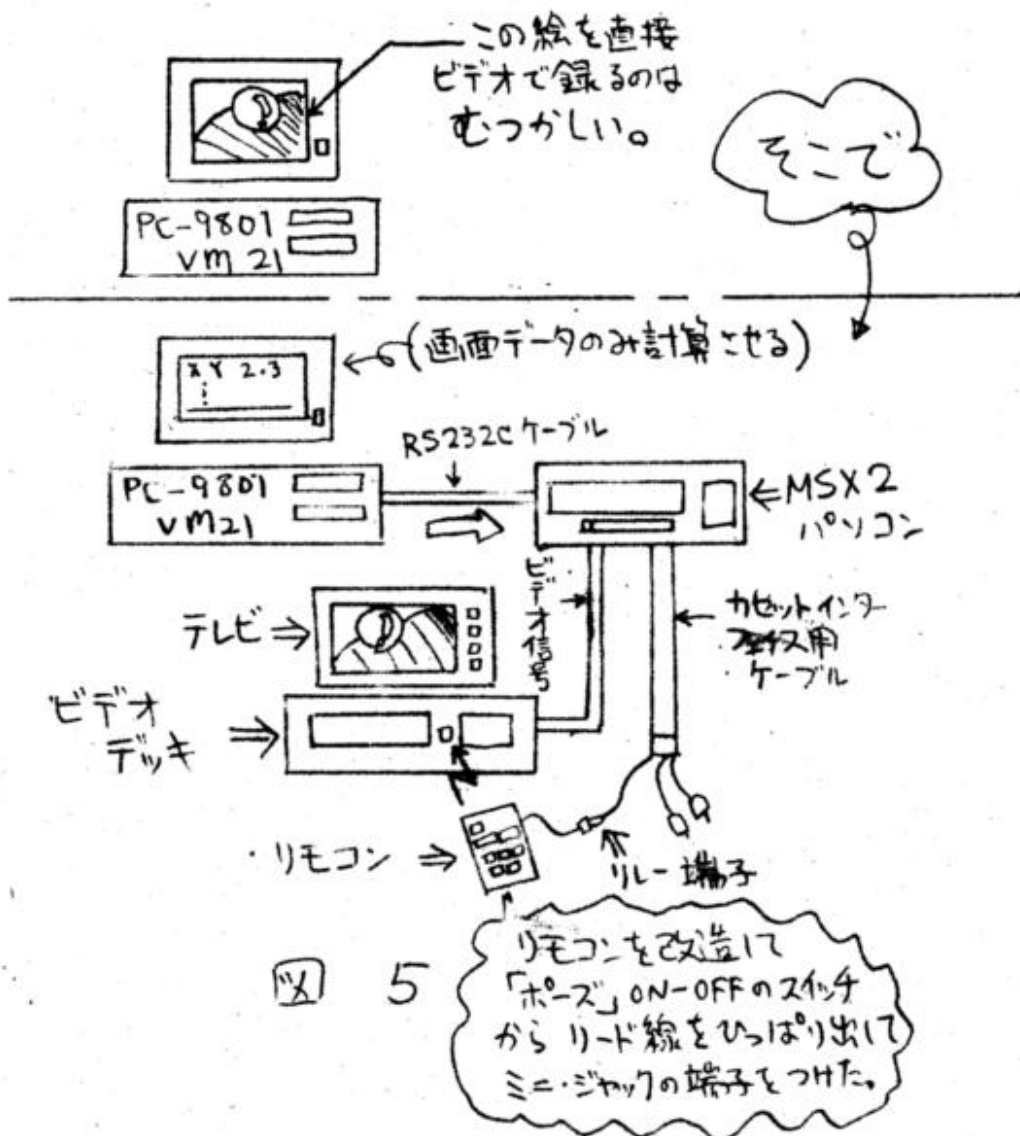 この絵を直接
ビデオで録るのは
むつかしい。
そこで
PC-9801
VM 21
(画面データのみ計算させる)
X Y 2.3
RS232Cケーブル
PC-9801
VM21
⇐MSX2
パソコン
ビデオ信号
カセットインター
フェイス用
ケーブル
テレビ⇒
ビデオ
デッキ ⇒
・リモコン ⇒
リレー端子
リモコンを改造して
「ポーズ」ON-OFFのスイッチ
からリード線をひっぱり出して
ミニ・ジャックの端子をつけた。
図 5